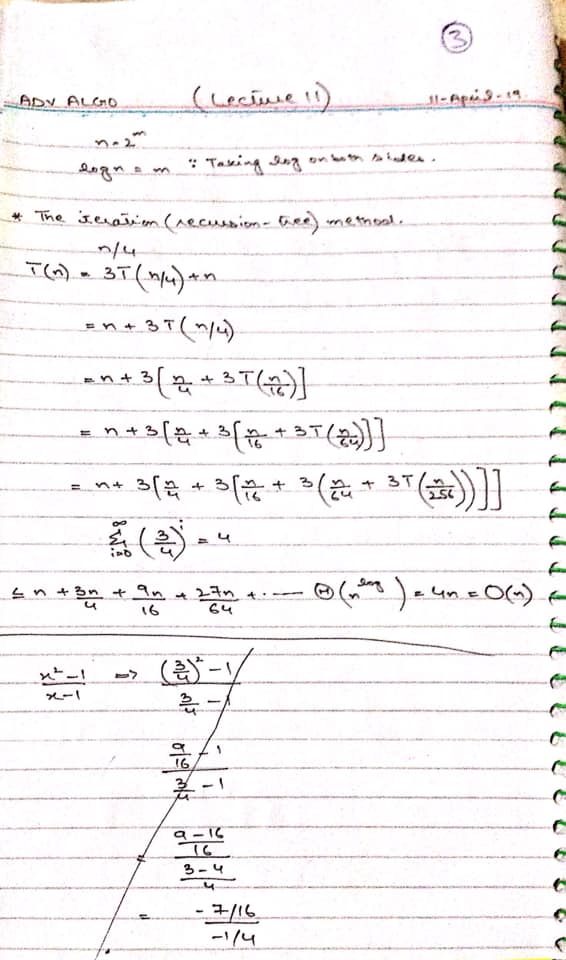 3
ADV ALGO (Lecture 11) 11-April-19
n = 2^m
log n = m ∵ Taking log on both sides.
* The iteration (recursion-tree) method.
n/4
T(n) = 3T(n/4)+n
= n + 3T(n/4)
= n + 3[n/4 + 3T(n/16)]
= n + 3[n/4 + 3[n/16 + 3T(n/64)]]
= n + 3[n/4 + 3[n/16 + 3(n/64 + 3T(n/256))]]
∞Σi=0 (3/4)^i = 4
≤ n + 3n/4 + 9n/16 + 27n/64 + ... — Θ(n^log ) = 4n = O(n)
x²-1/x-1 => (3/4)²-1/3/4-1
9/16-1/3/4-1
= 9-16/16/3-4/4
= -7/16/-1/4